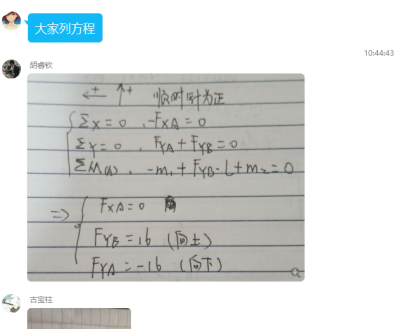 大家列方程
10:44:43
胡睿钦
← + ↑ + 顺时针为正
ΣX = 0 , -FXA = 0
ΣY = 0 , FYA + FYB = 0
ΣM(A) , -m₁ + FYB · L + m₂ = 0
=> FXA = 0
FYB = 16 (向上)
FYA = -16 (向下)
古宝柱